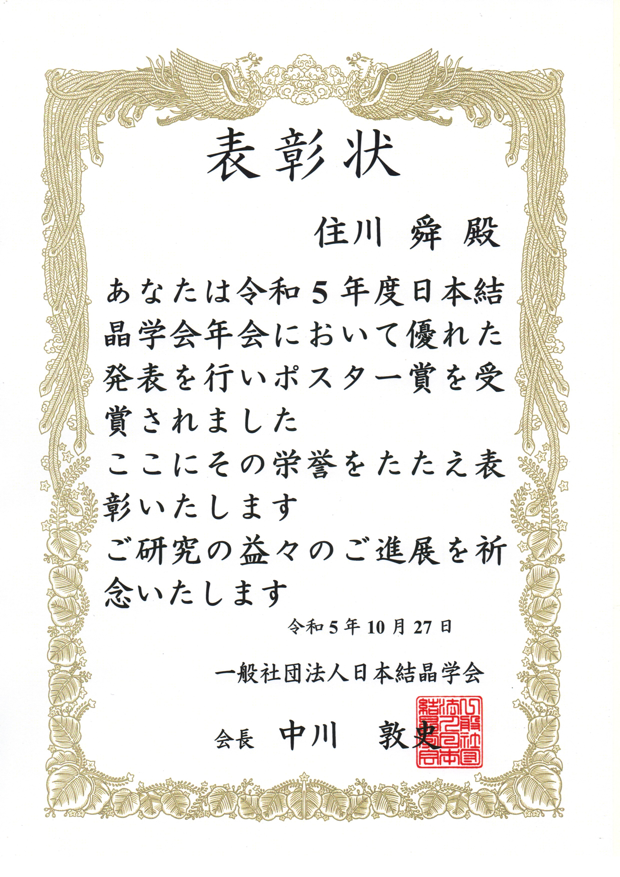 表彰状
住川 舜 殿
あなたは令和5年度日本結
晶学会年会において優れた
発表を行いポスター賞を受
賞されました
ここにその栄誉をたたえ表
彰いたします
ご研究の益々のご進展を祈
念いたします
令和5年10月27日
一般社団法人日本結晶学会
会長 中川 敦史